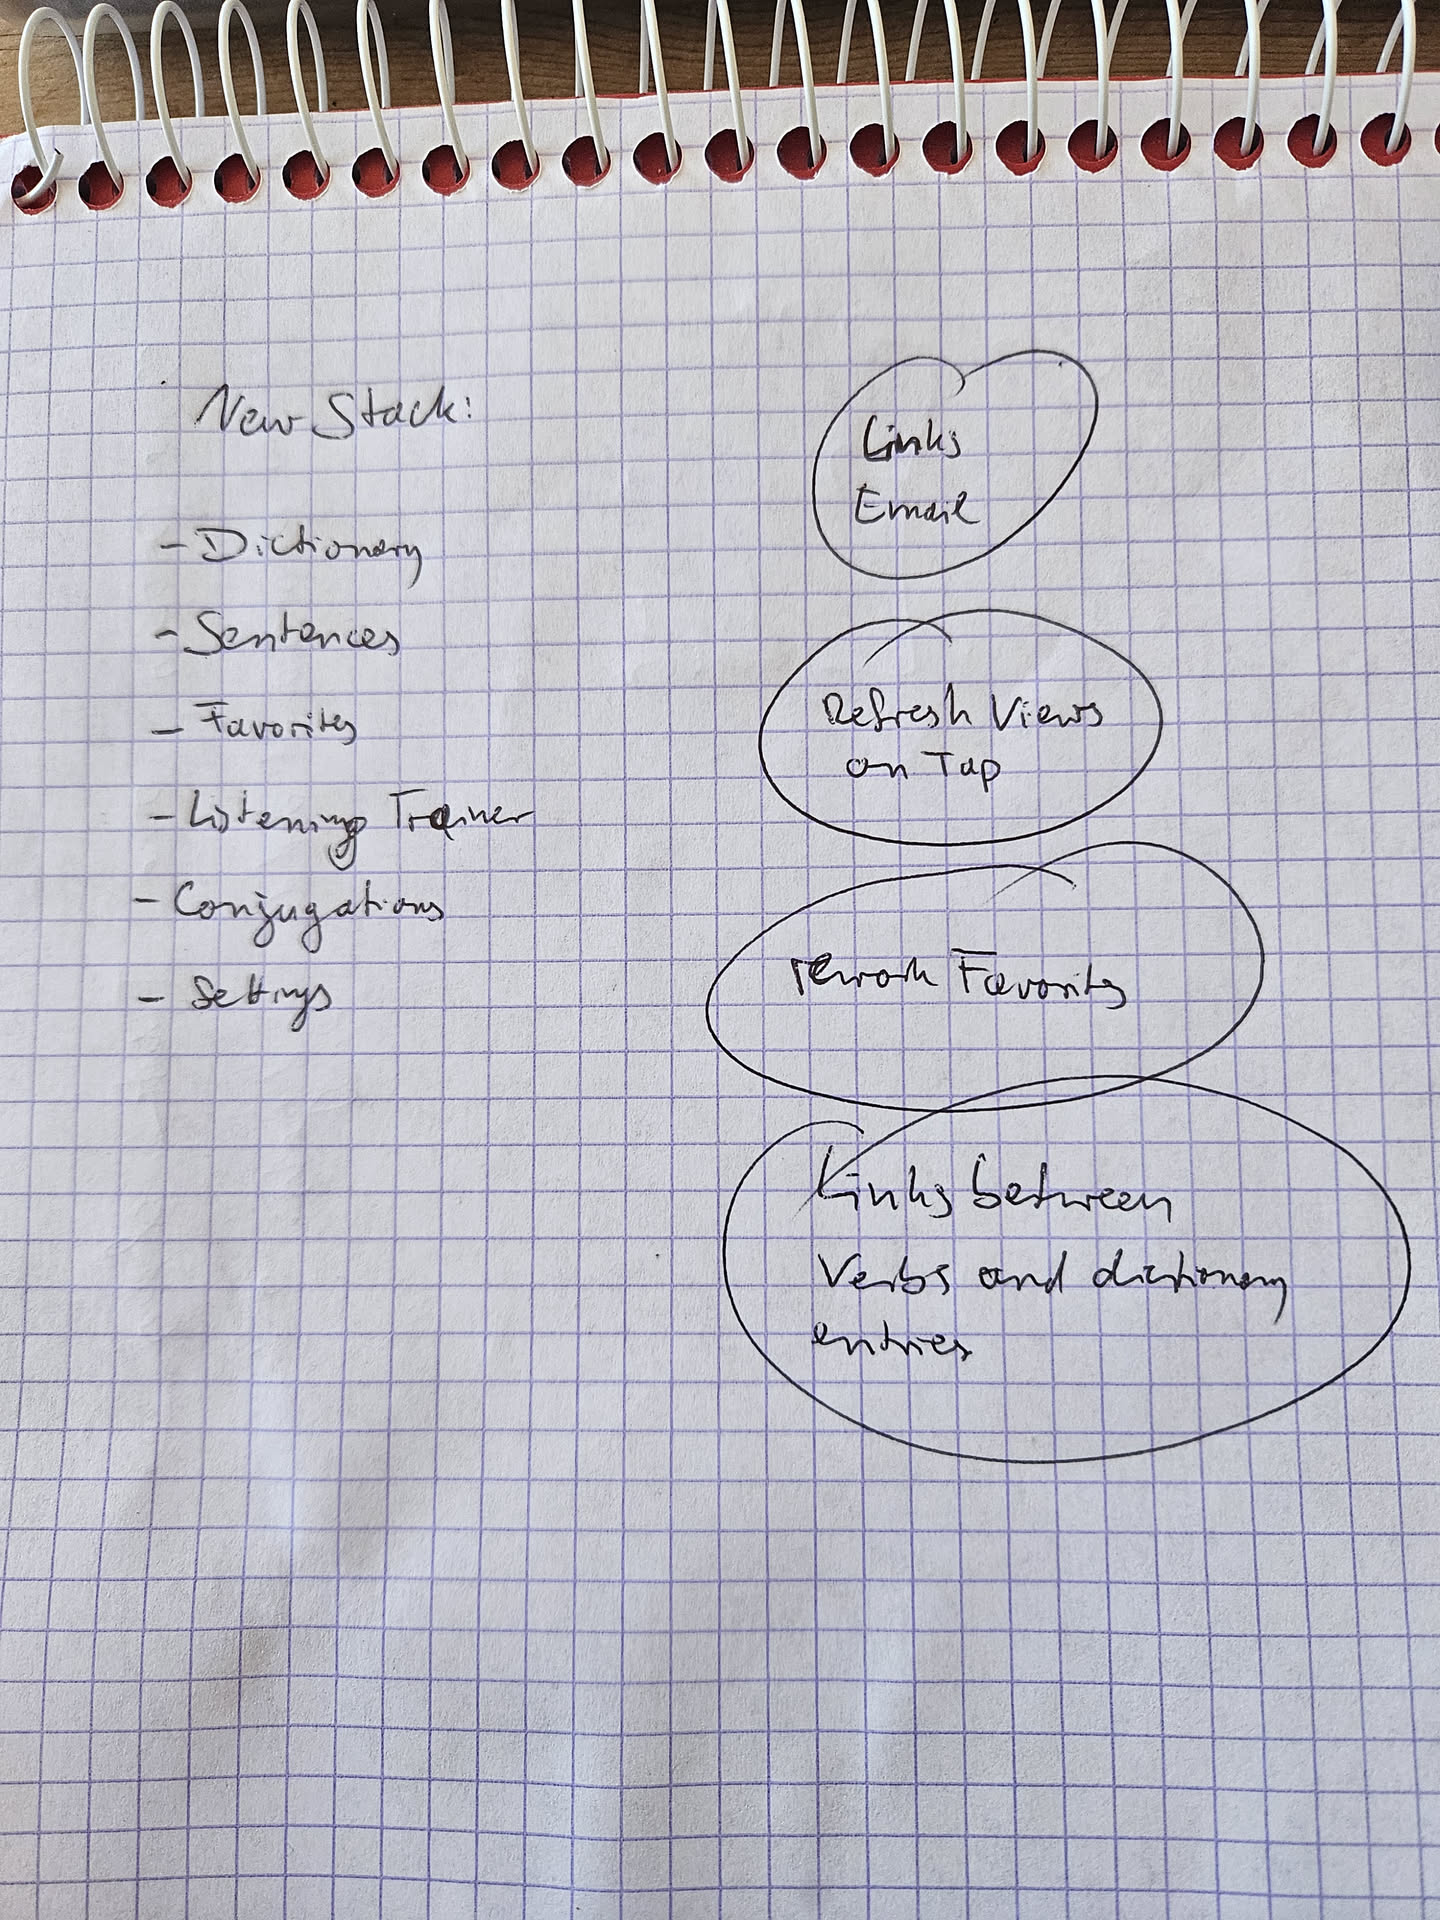 New Stack:
- Dictionary
- Sentences
- Favorites
- Listening Trainer
- Conjugations
- Settings
Links
Email
Refresh Views
on Tap
rework Favorites
Links between
Verbs and dictionary
entries